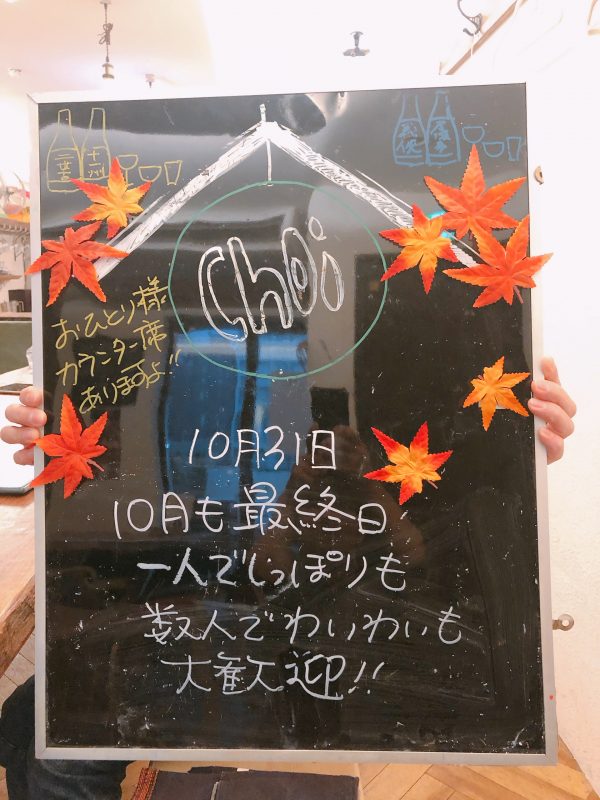 十州
Choi
おひとり様
カウンター席
ありますよ!!
10月31日
10月も最終日
一人でしっぽりも
数人でわいわいも
大歓迎!!